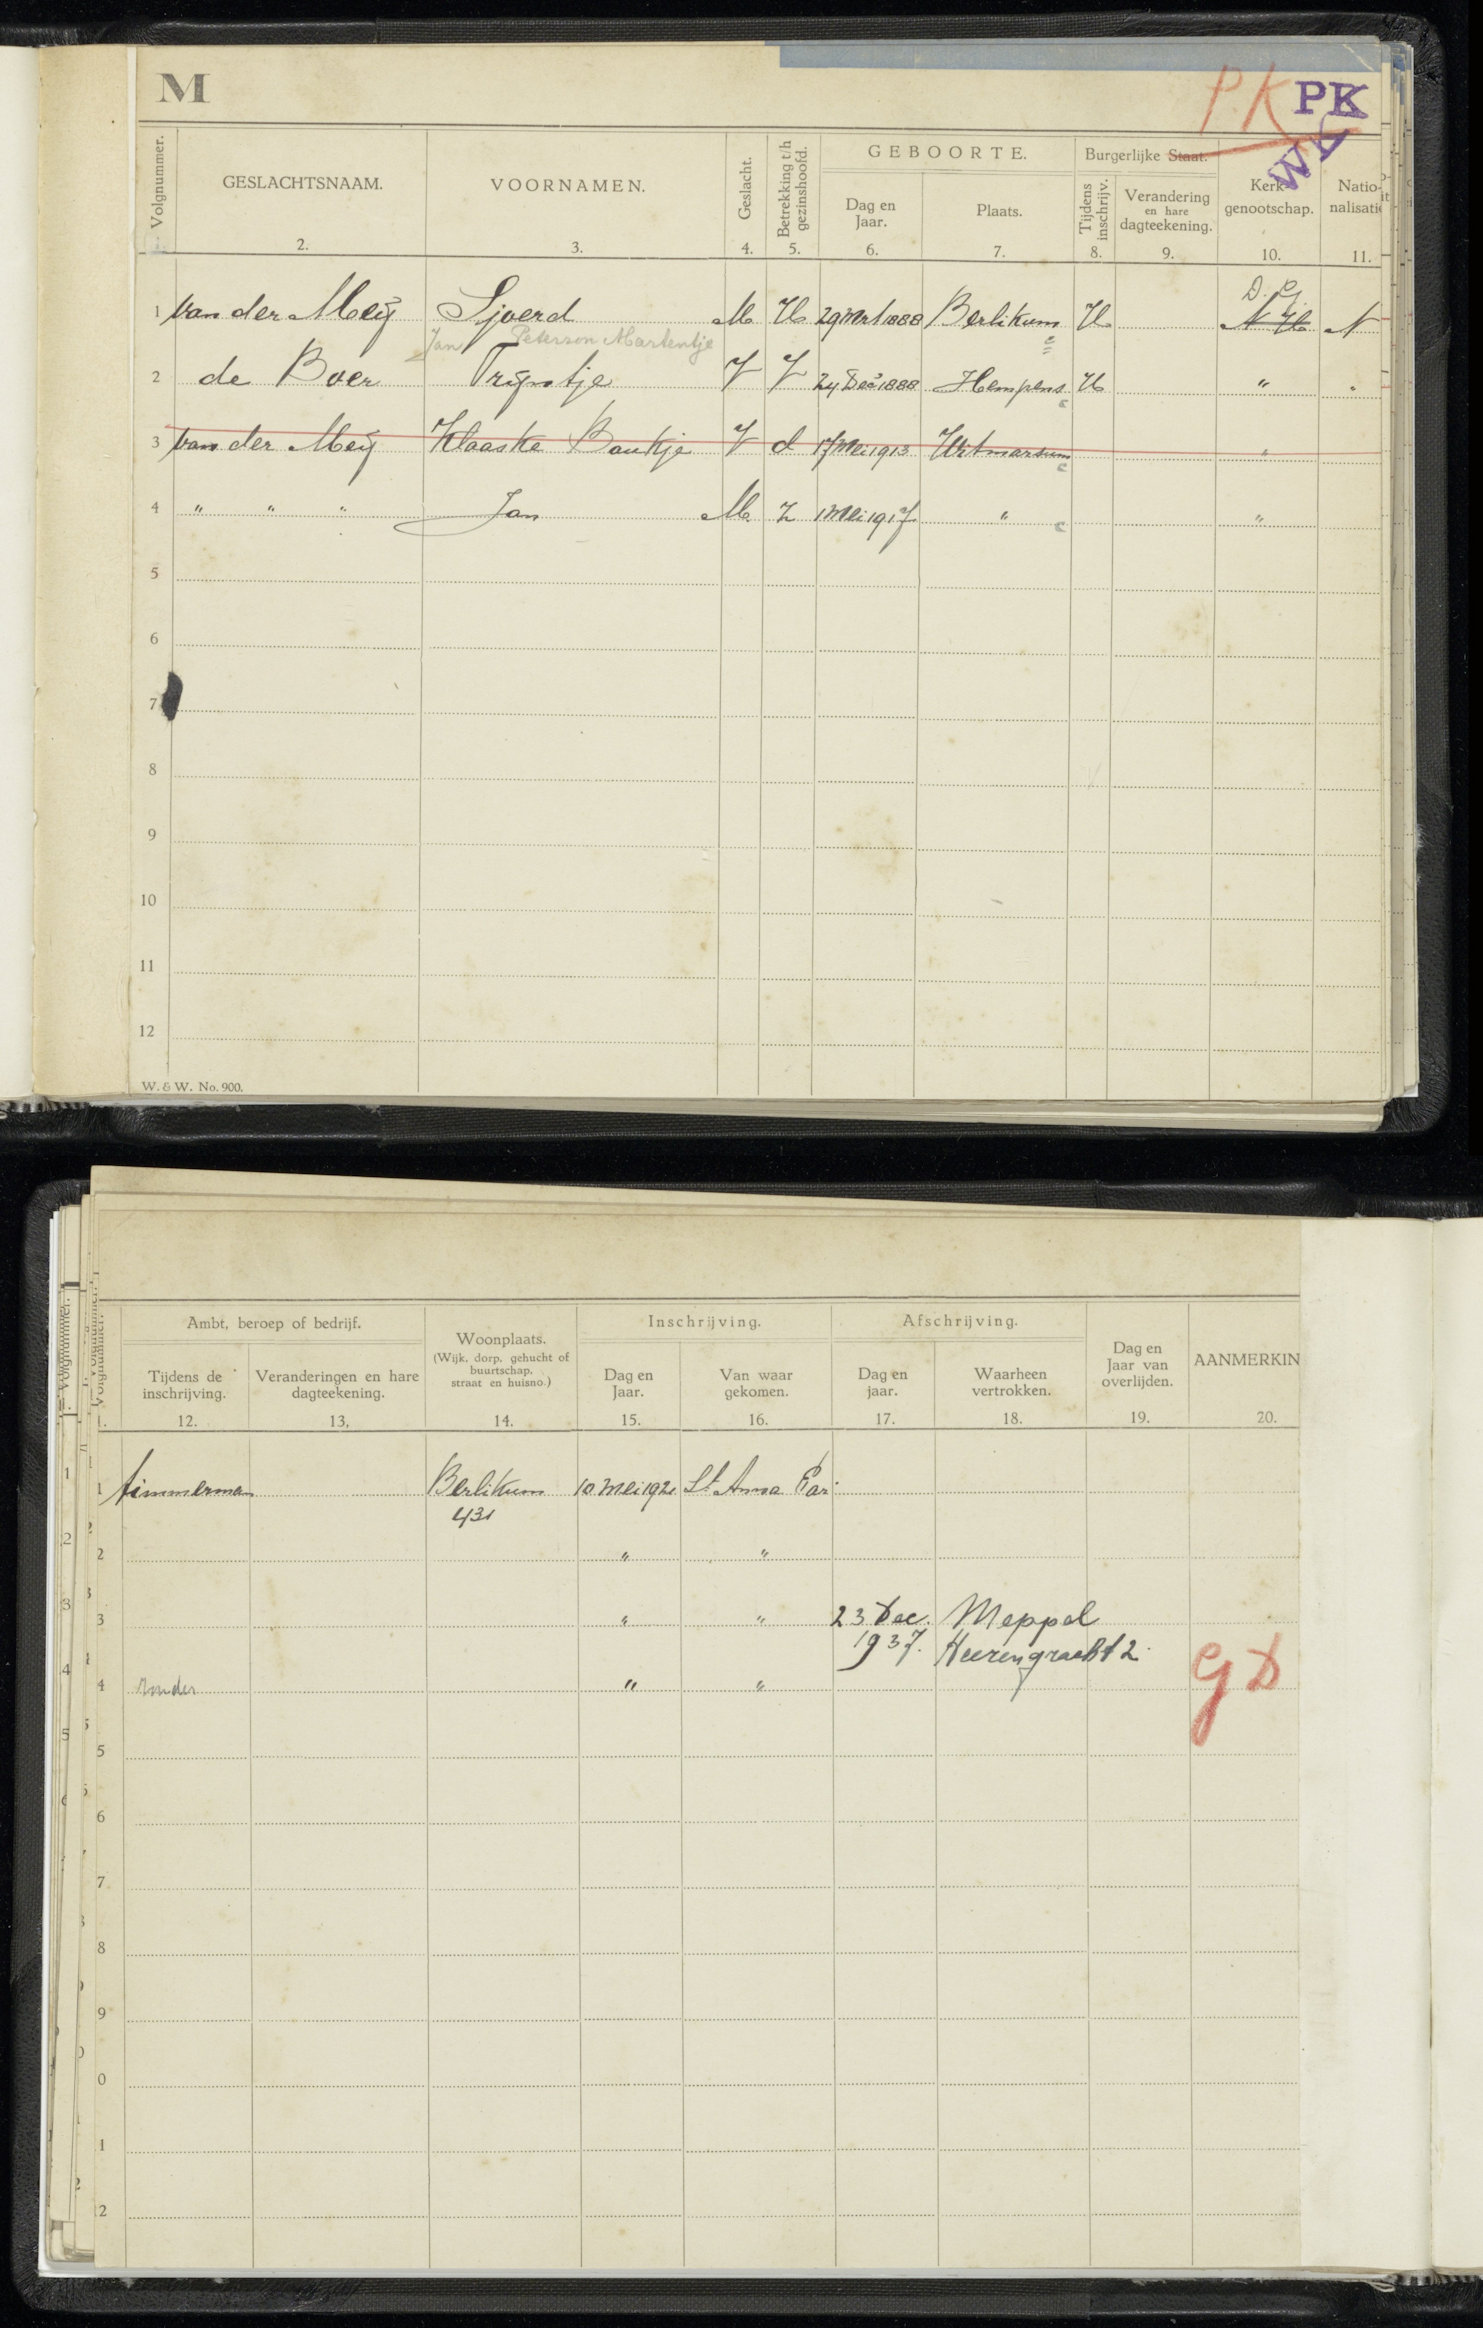 M
P.K PK
WK
Volgnummer.
GESLACHTSNAAM.
VOORNAMEN.
Geslacht.
Betrekking t/h gezinshoofd.
GEBOORTE.
Dag en Jaar.
Plaats.
Burgerlijke Staat.
Tijdens inschrijv.
Verandering en hare dagteekening.
Kerk- genootschap.
Natio- nalisatie
2. 3. 4. 5. 6. 7. 8. 9. 10. 11.
D. G.
1 van der Meij Sjoerd M H 29 Mrt 1888 Berlikum H N H N
Jan Peterson Martentje
2 de Boer Trijntje V V 24 Dec 1888 Hempens H " "
3 van der Meij Klaaske Baukje V d 17 Mei 1913 Witmarsum "
4 " " " Jan M Z 1 Mei 1917 " "
5
6
7
8
9
10
11
12
W. & W. No. 900.
Volgnummer.
Ambt, beroep of bedrijf.
Tijdens de inschrijving.
Veranderingen en hare dagteekening.
Woonplaats.
(Wijk, dorp, gehucht of buurtschap, straat en huisno.)
Inschrijving.
Dag en Jaar.
Van waar gekomen.
Afschrijving.
Dag en jaar.
Waarheen vertrokken.
Dag en Jaar van overlijden.
AANMERKIN
1. 12. 13. 14. 15. 16. 17. 18. 19. 20.
1 timmerman Berlikum 10 Mei 1921 St Anna Par.
431
2 " "
3 " " 23 Dec. Meppel
1937. Heerengracht 2.
4 zonder " " G D
5
6
7
8
9
0
1
2